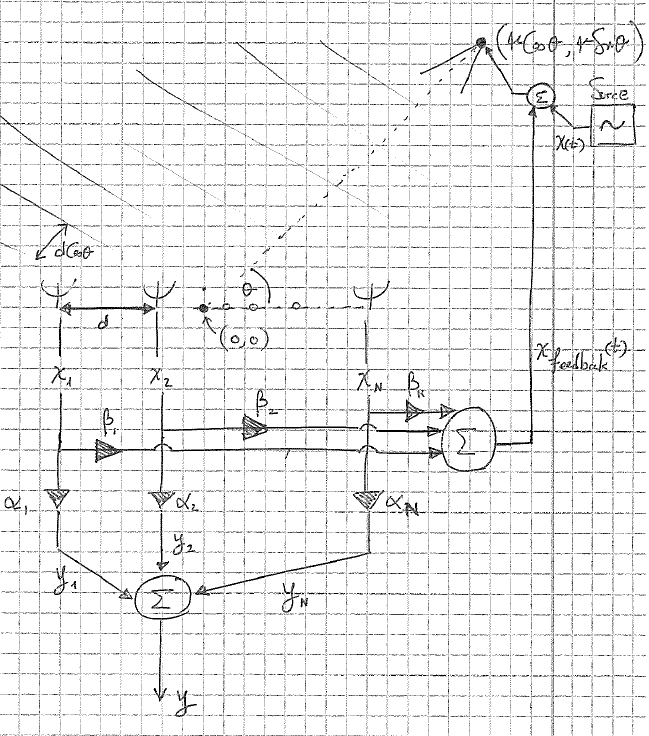 (r Cosθ, r Sinθ)
Σ
Source
~
x(t)
dCosθ
θ
d
(0,0)
x feedback (t)
x₁ x₂ x_N
β_N
β₂
β₁
Σ
α₁ α₂ α_N
y₂
y₁ y_N
Σ
y